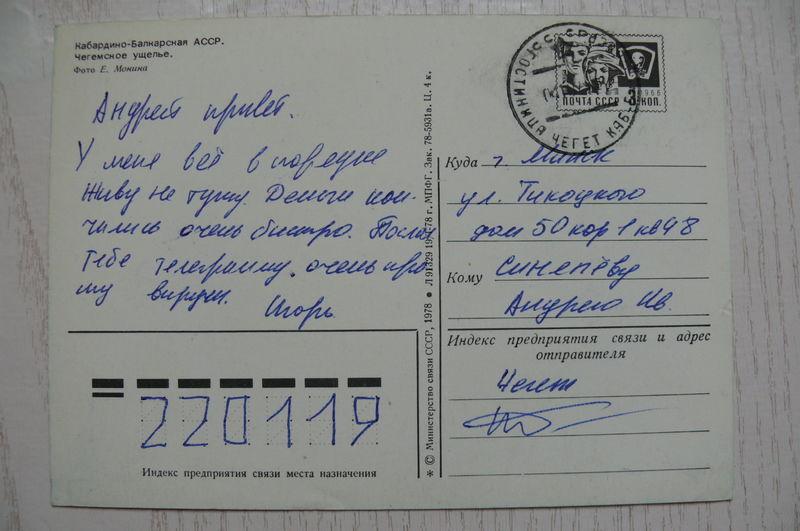 Кабардино-Балкарская АССР.
Чегемское ущелье.
Фото Е. Монина
Андрей привет.
У меня всё в порядке
живу не тужу. Деньги кон-
чились очень быстро. Послал
тебе телеграмму. очень про-
шу выручи. Игорь
ПОЧТА СССР
1966
КОП.
ГОСТИНИЦА ЧЕГЕТ КАБ-Б
Куда г. Минск
ул. Тикоцкого
дом 50 кор 1 кв 48
Кому Синепёву
Андрею Ив.
Индекс предприятия связи и адрес
отправителя
Чегет
220119
Индекс предприятия связи места назначения
* © Министерство связи СССР, 1978 ● Л 91329 78 г. МПФГ. Зак. 78-5931в. Ц. 4 к.